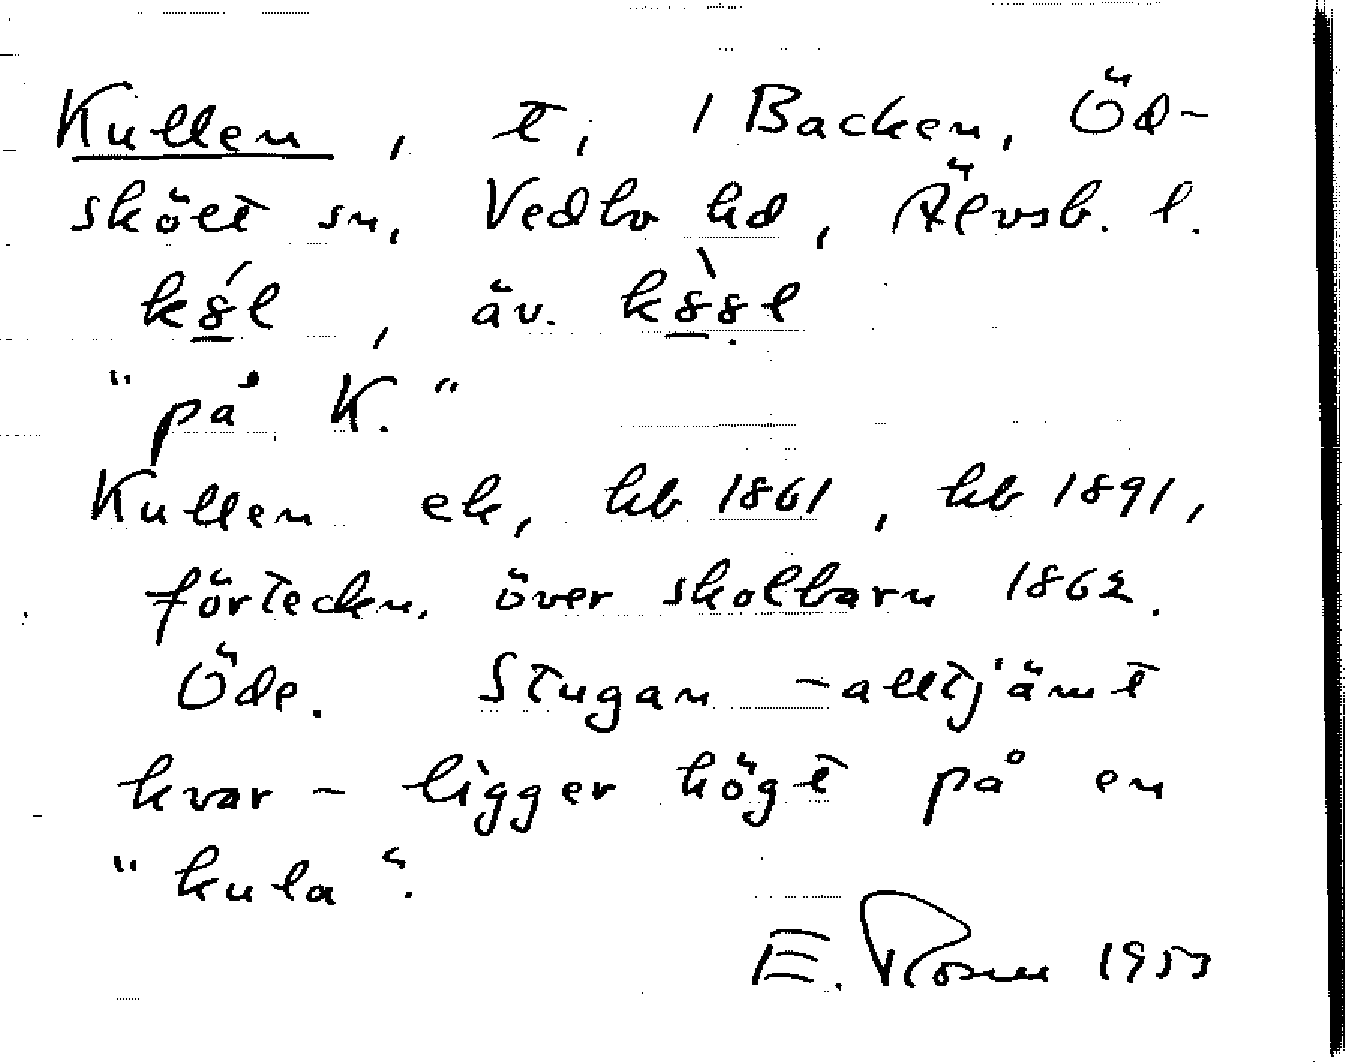 Kullen, t, 1 Backen, Öd-
skölt sn, Vedbo hd, Älvsb. l.
k8́l, äv. k8̀8̣l
"på K."
Kullen ek, hb 1861, hb 1891,
förteckn. över skolbarn 1862.
Öde. Stugan - alltjämt
kvar - ligger högt på en
"kula".
E. Rosell 1953